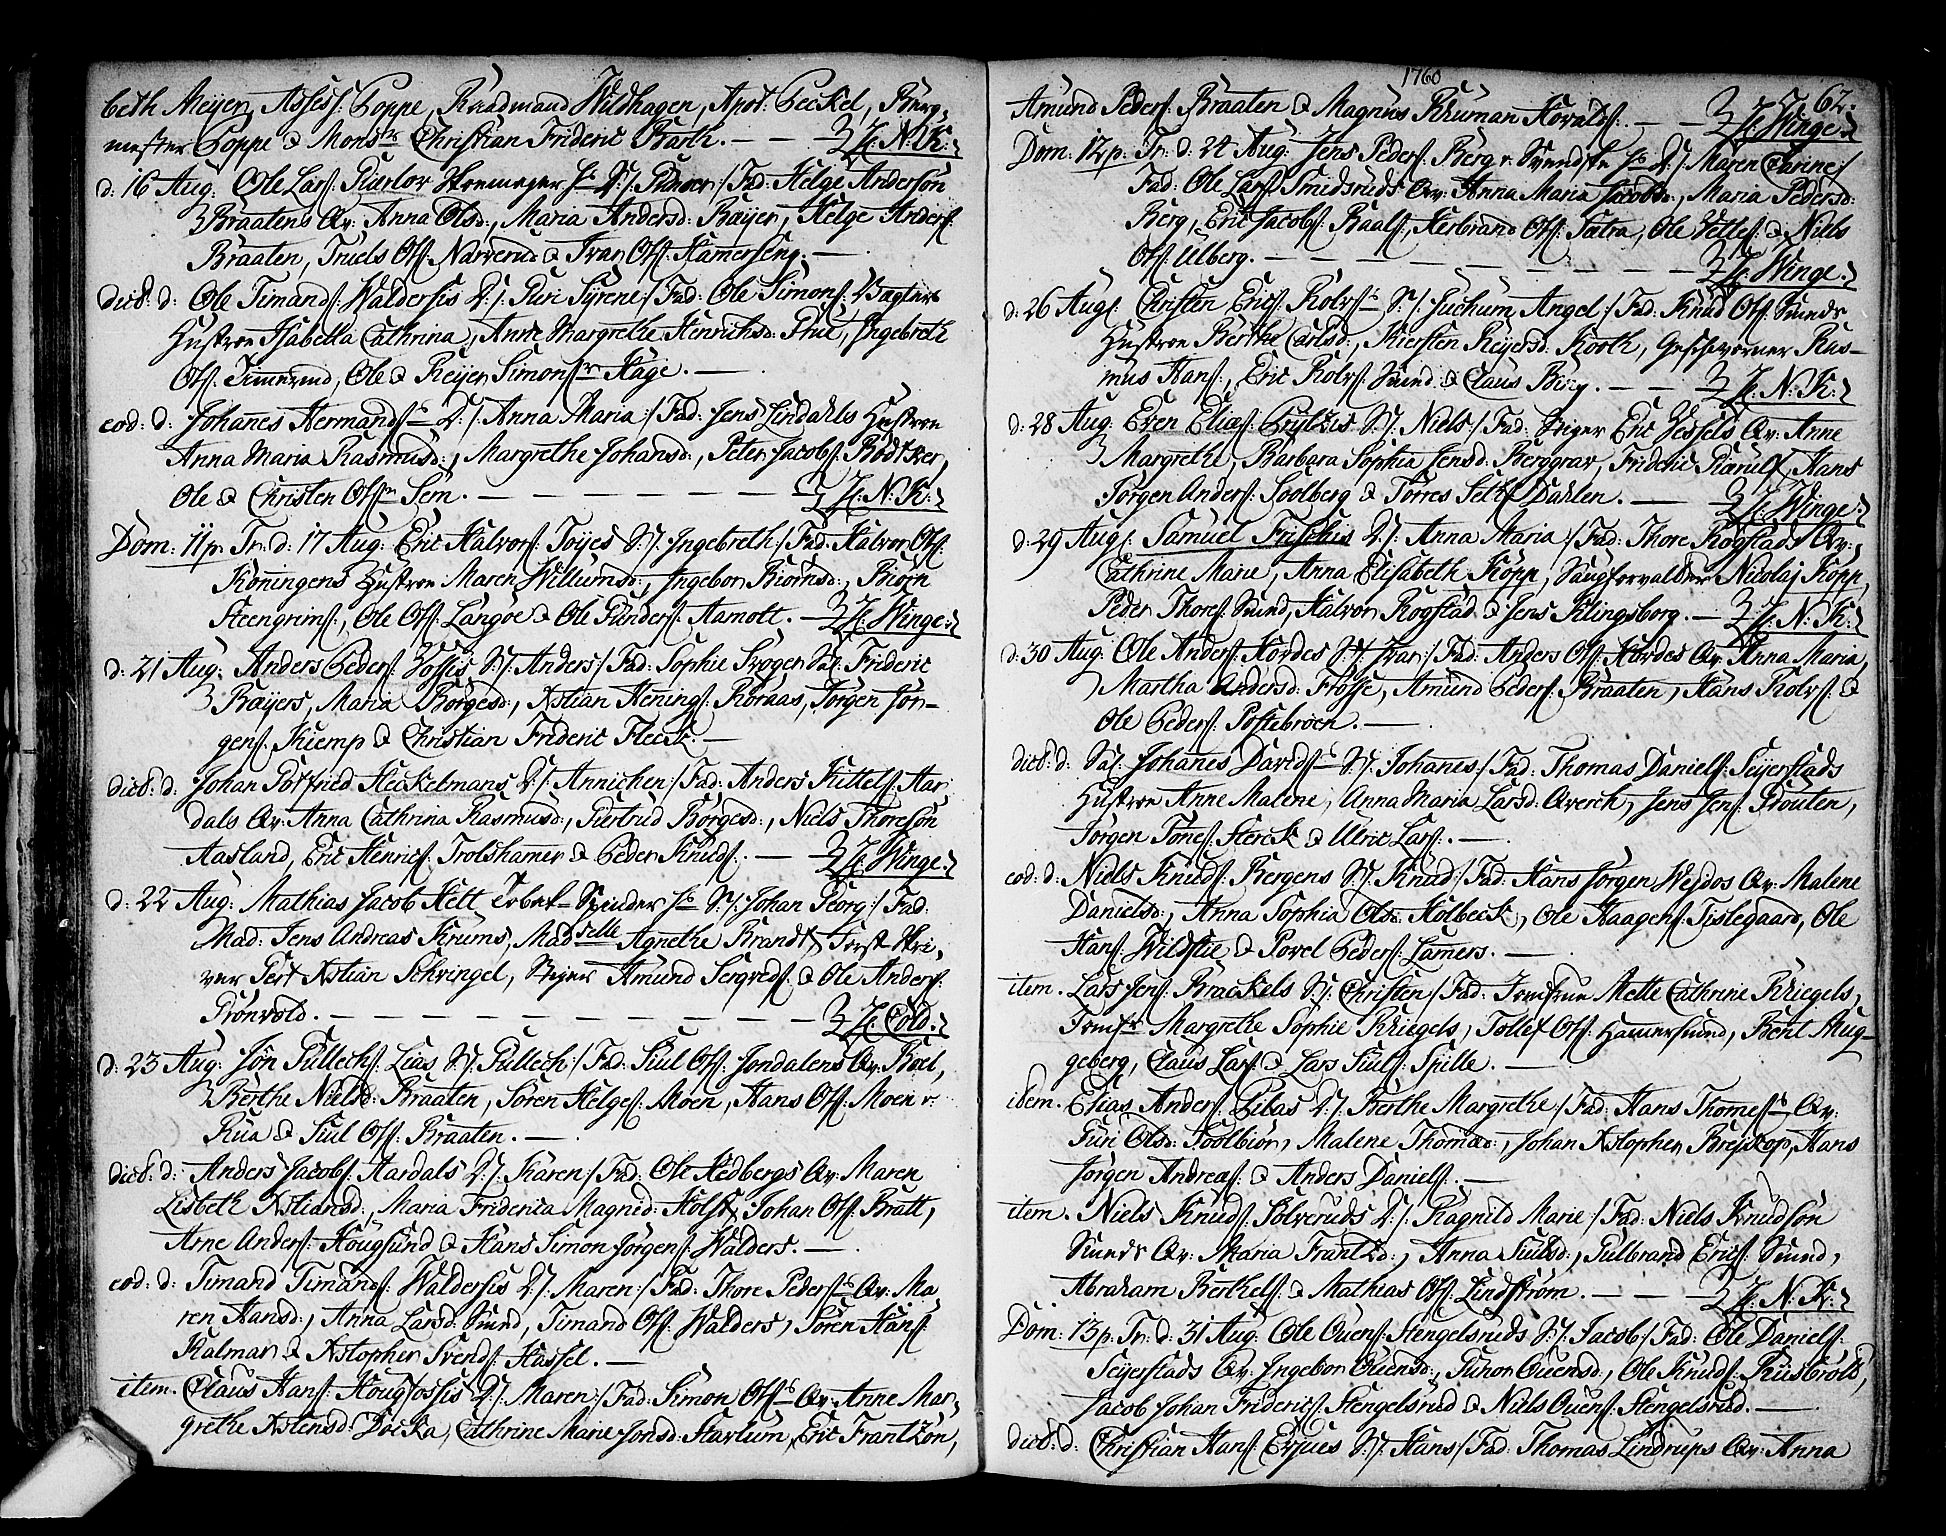 beth Meyer, Assess: Poppe, Raadmand Wildhagen, Apot: Peckel, Burg-
mester Poppe & Monsr Christian Frideric Barth. — — H: N: K:
d: 16 Aug: Ole Lars: Skremager D:/: /: Fad: Helge Anderson
Braatens Qv: Anna Olsd:, Maria Andersd: Bæyer, Helge Anders:
Braaten, Truels Ols: Narverud & Ivar Ols: Hamerseng. —
dict: d: Ole Timands: Waldersis D:/: Guri Syrene /: Fad: Ole Simons: Vagters
Hustroe Isabella Cathrina, Anne Margrethe Henrichsd: , Ingebreth
Ols: Timerud, Ole & Reyer Simonssr Hage. —
eod: d: Johanes Hermandss D:/: Anna Maria /: Fad: Jens Lindahls Hustroe
Anna Maria Rasmusd:, Margrethe Johansd:, Peter Jacobs: Bödtker,
Ole & Christen Olssr Sem. — — — — — — — H: N: K:
Dom: 11 p. Tr: d: 17 Aug: Eric Halvors: Töyes S:/: Ingebreth /: Fad: Halvor Ols:
Koningens Hustroe Maren Willumsd:, Ingebor Biornsd:, Biörn
Steengrims:, Ole Ols: Langöe & Ole Gunders: Aamott. — H: Winge
d: 21 Aug: Anders Peders: Fossis S:/: Anders /: Fad: Sophie Sal: Frideric
Bæyers, Maria Börgesd:, Xstian Henings: Röraas, Jörgen Jör-
gens: Kiemp & Christian Frideric Fleck. —
dict: d: Johan Gotfried Heckelmans D:/: Annichen /: Fad: Anders Kittels: Aar-
dals Qv: Anna Cathrina Rasmusd:, Giertrud Börgesd:, Niels Thoresön
Aasland, Eric Henrics: Trolshamer & Peder Knuds:. — H: Winge
d: 22 Aug: Mathias Jacob Hett Tobak-Spinder S:/: Johan Georg /: Fad:
Mad: Jens Andreas Krums, Madselle Agnethe Brandt, Forst-Skri-
ver Gert Xstian Schvingel, Steyer Amund Sergveds: & Ole Anders:
Grönvold. — — — — — — — — — H: Cold:
d: 23 Aug: Jön Gullechs: Lias S:/: Gullech /: Fad: Giul Ols: Jondalens Qv: Boel,
Berthe Nielsd: Braaten, Sören Helges: Moen, Hans Ols: Moen v:
Rua & Giul Ols: Braaten. —
dict: d: Anders Jacobs: Aardals D:/: Karen /: Fad: Ole Hedbergs Qv: Maren
Lisbeth Xstiansd:, Maria Friderica Magnid: Holst, Johan Ols: Bratt,
Arne Anders: Hougsund & Hans Simon Jörgens: Walders. —
eod: d: Timand Timands: Waldersis D:/: Maren /: Fad: Thore Pederss Qv: Ma-
ren Hansd:, Anna Larsd: Sund, Timand Ols: Walders, Sören Hans:
Kalmar & Xstopher Svends: Hassel. —
item. Claus Hans: Hougfossis D:/: Maren /: Fad: Simon Olss Qv: Anne Mar-
grethe Xstensd: Docka, Cathrine Marie Jonsd: Starlum, Eric Frantzön,
1760
62.
Amund Peders: Braaten & Magnus Kruman Horvalds:. — — H: Winge
Dom: 12 p. Tr: d: 24 Aug: Jens Peders: Berg v: Svendske D:/: Maren Catrine /:
Fad: Ole Lars: Smedsruds Qv: Anna Maria Jacobsd:, Maria Pedersd:
Berg, Eric Jacobs: Baals:, Herbrand Ols: Sætra, Ole Vetles: & Niels
Ols: Ulberg. — — — — — — — — H: Winge
d: 26 Aug: Christen Erics: Rolvss S:/: Angel /: Fad: Knud Ols: Sunds
Hustroe Berthe Carlsd:, Kiersten Reyersd: Kooth, Geschworner Ras-
mus Hans:, Eric Rolvs: Sund & Claus Bing. — — H: N: K:
d: 28 Aug: Even Elias: Prytzis S:/: Niels /: Fad: Steiger Eric Jesfelds Qv: Anne
Margrethe, Barbara Sophia Jensd: Berggrav, Frideric Giærulf, Hans
Jörgen Anders: Soolberg & Torres Dahlen. — H: Winge
d: 29 Aug: Samuel Frischis D:/: Anna Maria /: Fad: Thore Rogstads Qv:
Cathrine Marie, Anna Elisabeth Kopp, Saugforvalter Nicolaj Kopp,
Peder Thores: Sund, Halvor Rogstad & Jens Klingsborg. — H: N: K:
d: 30 Aug: Ole Anders: Hordes S:/: Ivar /: Fad: Anders Ols: Hordes Qv: Anna Maria,
Martha Andersd: Frösse, Amund Peders: Braaten, Hans Rolvs: &
Ole Peders: Postebroen. —
dict: d: Sal: Johanes Davidss S:/: Johanes /: Fad: Thomas Daniels: Seyerstads
Hustroe Anne Malene, Anna Maria Larsd: Qverch, Jens Jens: Grouten,
Jörgen Tönes: Sterck & Ulric Lars:. —
eod: d: Niels Knuds: Bergens S:/: Knud /: Fad: Hans Jörgen Weidos Qv: Malene
Danielsd:, Anna Sophia Olsd: Holbeck, Ole Haagens: Tislegaard, Ole
Hans: Wildstie & Povel Peders: Lamers. —
item. Lars Jens: Brackels S:/: Christen /: Fad: Jomfrue Mette Cathrine Kriegels,
Jomfr Margrethe Sophie Kriegels, Tollef Ols: Hamersund, Bent Mug-
geberg, Claus Lars: & Lars Giuls: Spille. —
idem. Elias Anders: Pilas D:/: Berthe Margrethe /: Fad: Hans Thomess Qv:
Guri Olsd: Soolbiör, Malene Thomæd:, Johan Xstopher Breyskop, Hans
Jörgen Andreas: & Anders Daniels:. —
item. Niels Knuds: Sölveruds D:/: Ragnild Marie /: Fad: Niels Knudsön
Sunds Qv: Maria Frantzd:, Anna Giulsd:, Gulbrand Erics: Sund,
Abraham Berthels: & Mathias Ols: Lindström. — — H: N: K:
Dom: 13 p. Tr: d: 31 Aug: Ole Ouens: Stengelsruds S:/: Jacob /: Fad: Ole Daniels:
Seyerstads Qv: Ingebor Ouensd:, Guror Ouensd:, Ole Knuds: Kiisbröld,
Jacob Johan Frideric: Stengelsrud & Niels Ouens: Stengelsrud. —
dict: d: Christian Hans: S:/: Hans /: Fad: Thomas Lindrups Qv: Anna